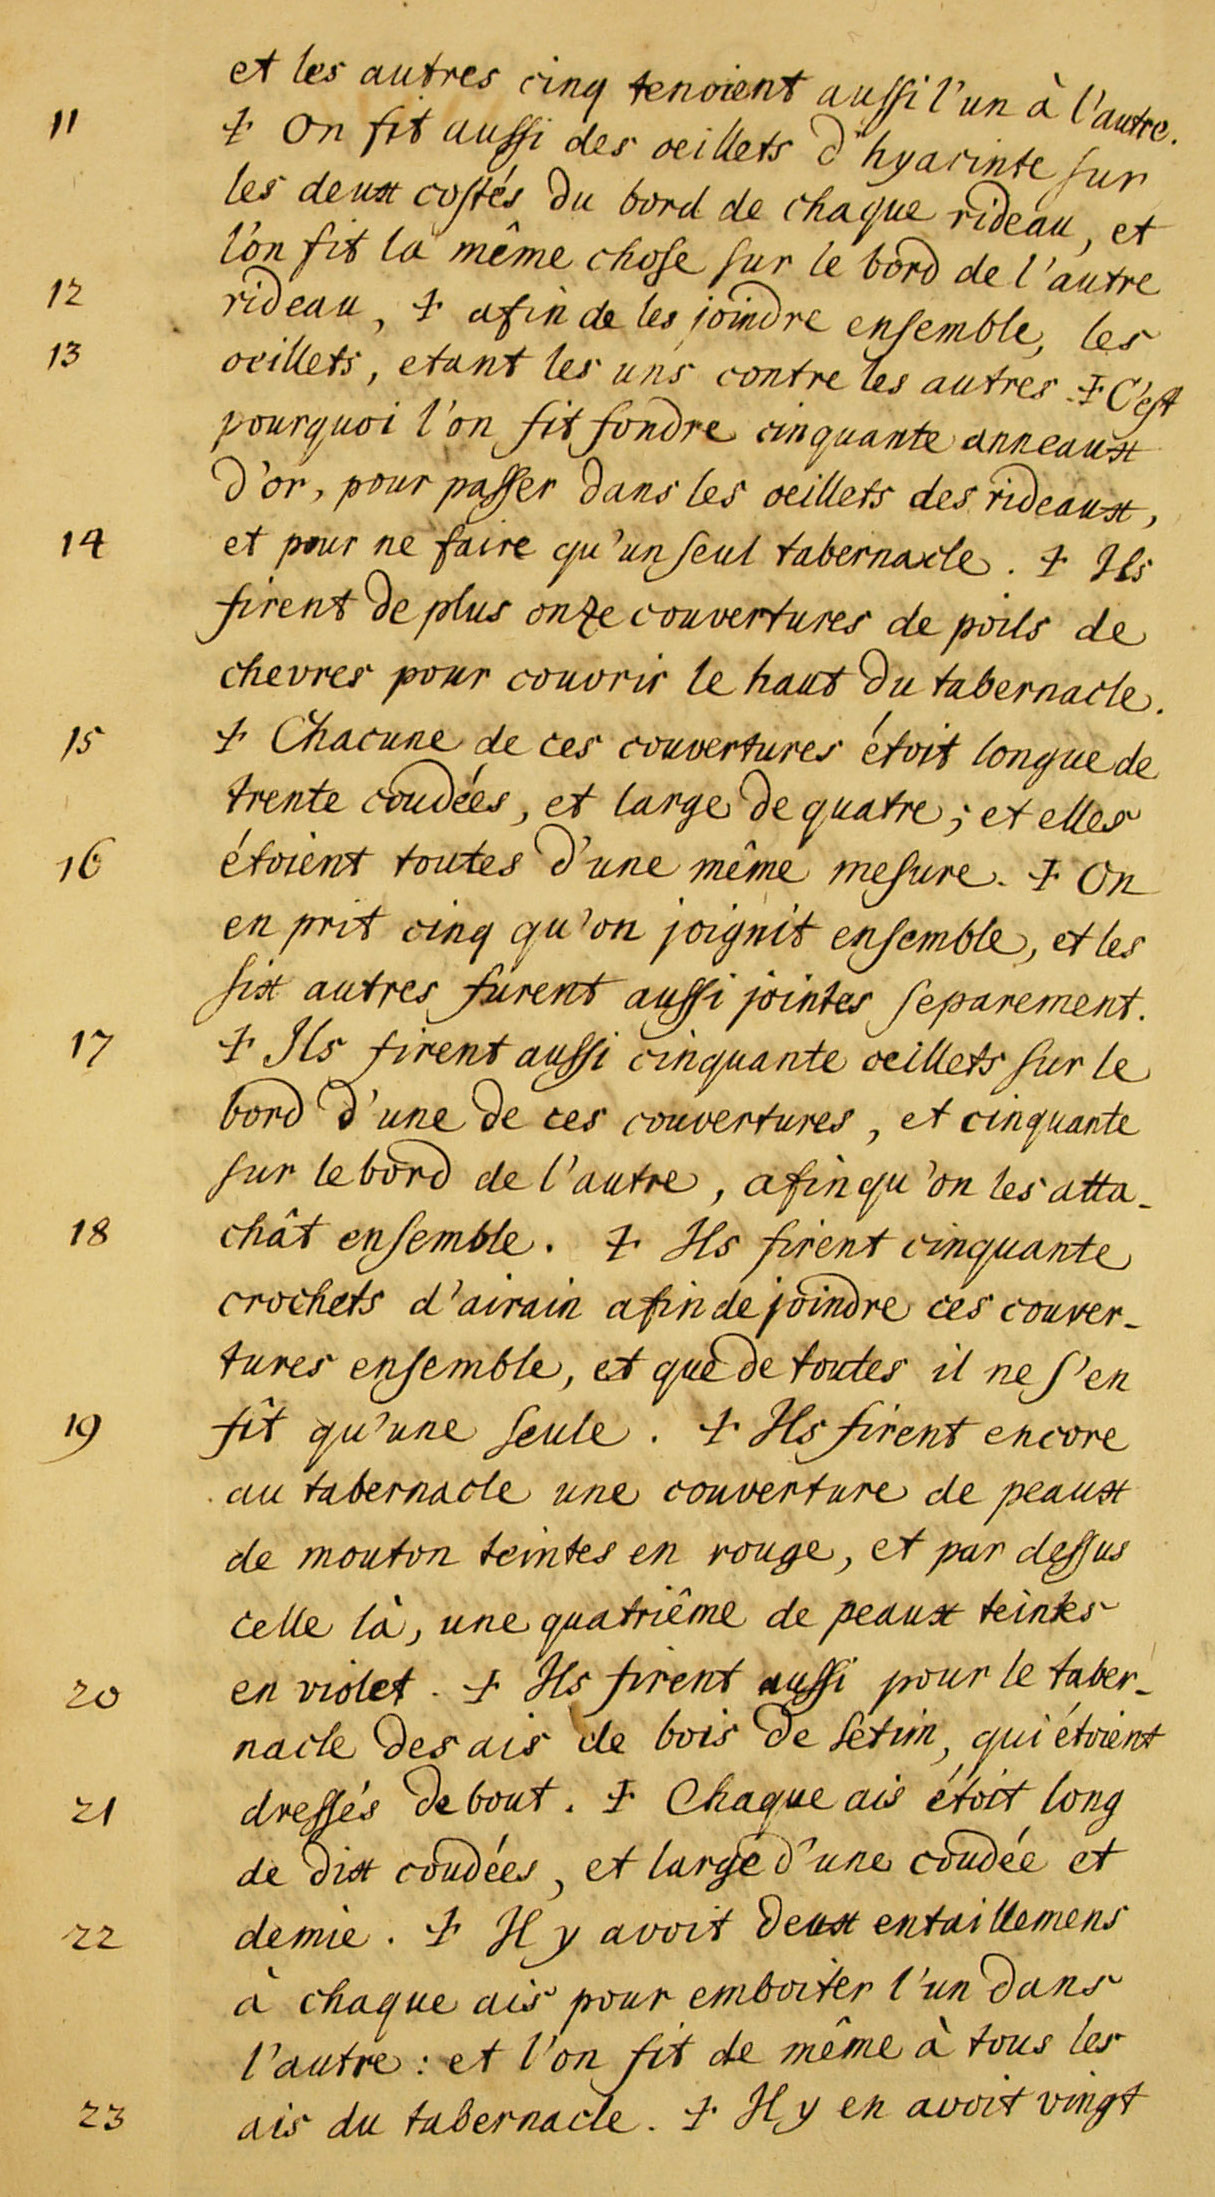 et les autres cinq tenoient aussi l'un à l'autre.
11 ‡ On fit aussi des oeillets d'hyacinte sur
les deux costés du bord de chaque rideau, et
l'on fit la même chose sur le bord de l'autre
12 rideau, ‡ afin de les joindre ensemble, les
13 oeillets, etant les uns contre les autres ‡ C'est
pourquoi l'on fit fondre cinquante anneaux
d'or, pour passer dans les oeillets des rideaux,
14 et pour ne faire qu'un seul tabernacle. ‡ Ils
firent de plus onze couvertures de poils de
chevres pour couvrir le haut du tabernacle.
15 ‡ Chacune de ces couvertures étoit longue de
trente coudées, et large de quatre; et elles
16 étoient toutes d'une même mesure. ‡ On
en prit cinq qu'on joignit ensemble, et les
six autres furent aussi jointes separement.
17 ‡ Ils firent aussi cinquante oeillets sur le
bord d'une de ces couvertures, et cinquante
sur le bord de l'autre, afin qu'on les atta-
18 chât ensemble. ‡ Ils firent cinquante
crochets d'airain afin de joindre ces couver-
tures ensemble, et que de toutes il ne s'en
19 fît qu'une seule. ‡ Ils firent encore
au tabernacle une couverture de peaux
de mouton teintes en rouge, et par dessus
celle là, une quatriême de peaux teintes
20 en violet. ‡ Ils firent aussi pour le taber-
nacle des ais de bois de setim, qui étoient
21 dressés debout. ‡ Chaque ais étoit long
de dix coudées, et large d'une coudée et
22 demie. ‡ Il y avoit deux entaillemens
à chaque ais pour emboiter l'un dans
l'autre: et l'on fit de même à tous les
23 ais du tabernacle. ‡ Il y en avoit vingt